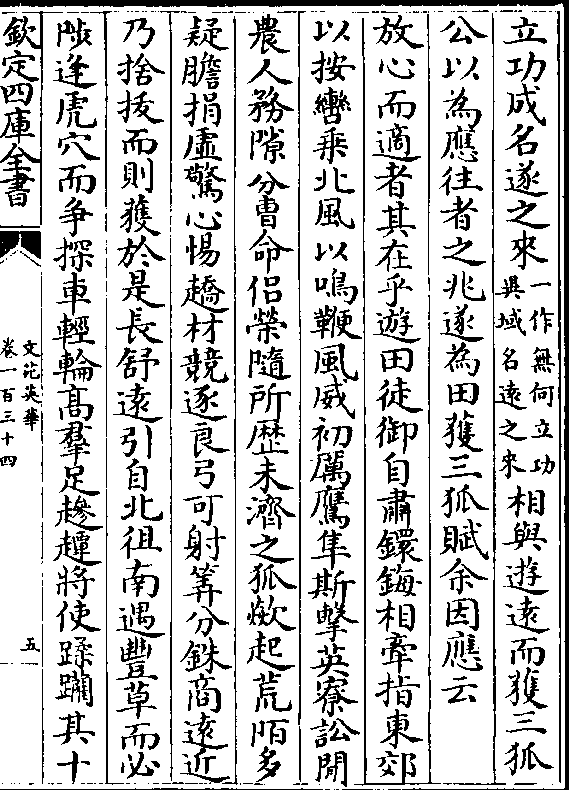 立功成名遂之來一作無何立功異域名遠之來相與遊遠而獲三狐
公以為應往者之兆遂為田獲三狐賦余因應云
放心而適者其在乎遊田徒御自肅鐶鋂相牽指東郊
以按轡乗北風以鳴鞭風威初厲鷹隼斯擊英寮訟閒
農人務隙分曹命侣榮隨所歴未濟之狐歘起荒陌多
疑膽捐虛驚心惕趫材競逐良弓可射筭分銖商遠近
乃捨拔而則獲於是長舒遠引自北徂南遇豐草而必
陟逢虎穴而争探車輕輪高羣足趁趯將使蹂躪其十
欽定四庫全書
文苑英華
卷一百三十四
五